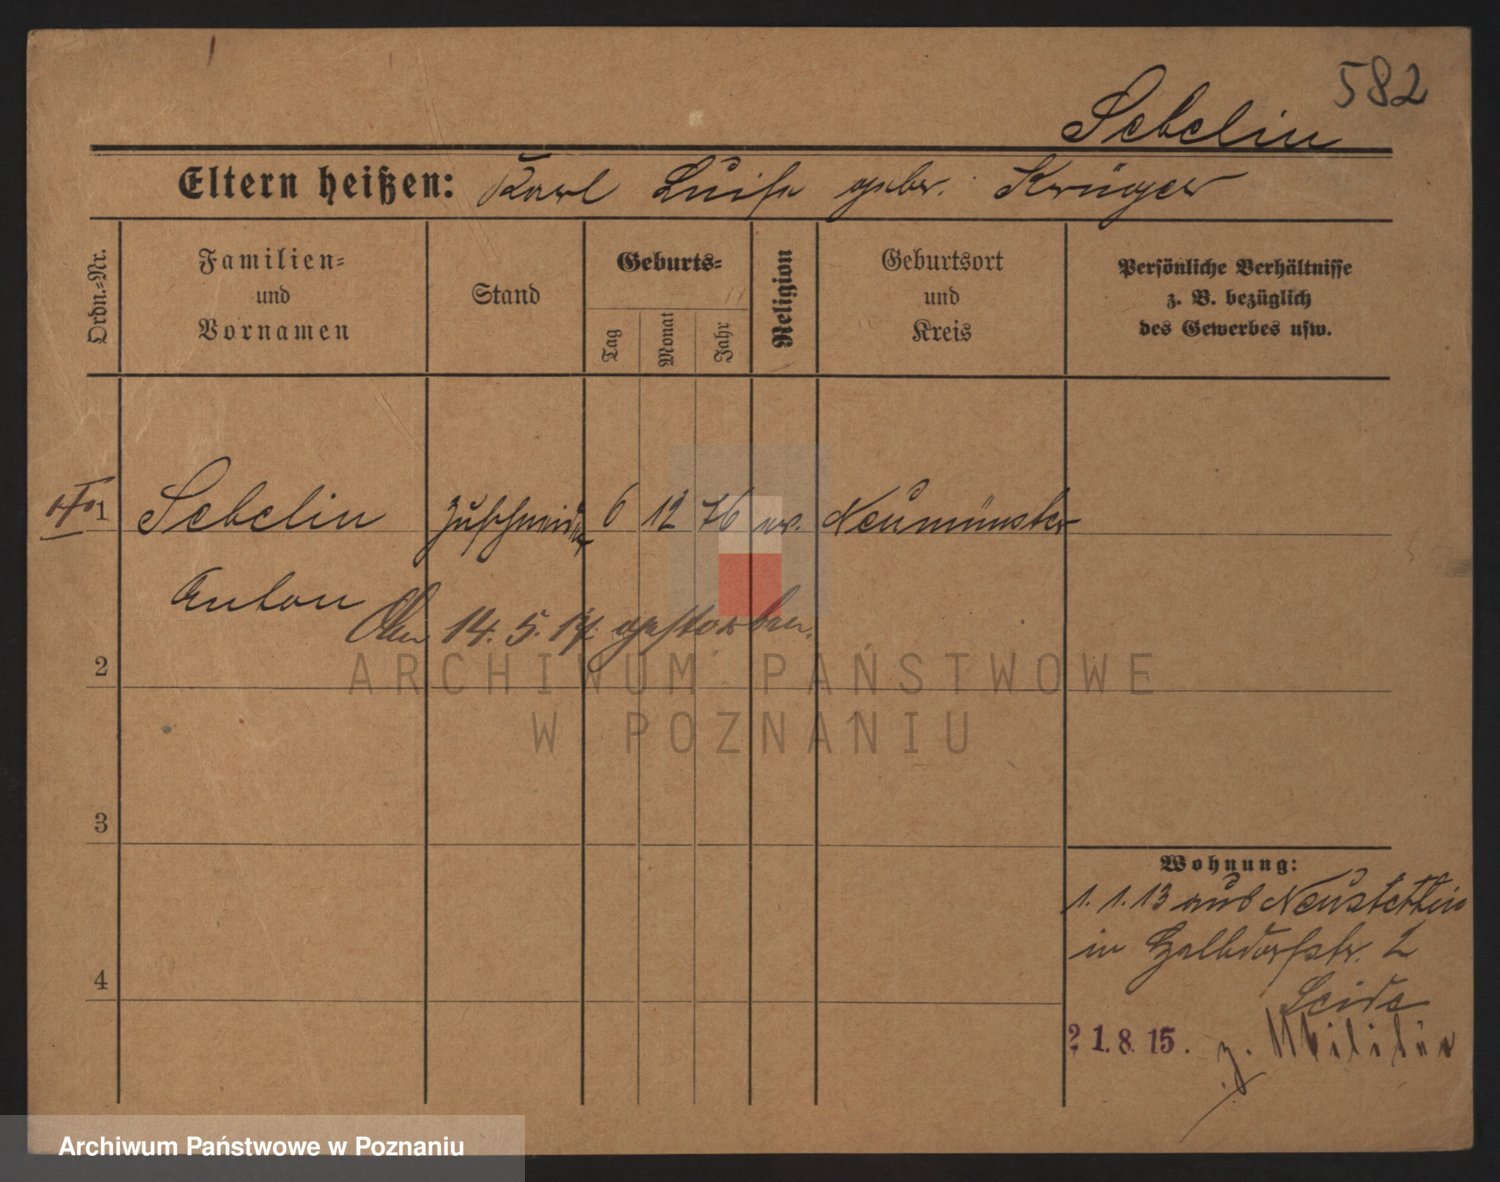 582
Sebelin
Eltern heißen: Karl Luise gebr. Krüger
Ordn.-Nr.
Familien-
und
Vornamen
Stand
Geburts-
Tag
Monat
Jahr
Religion
Geburtsort
und
Kreis
Persönliche Verhältnisse
z. B. bezüglich
des Gewerbes usw.
1 Sebelin Zuschneider 6 12 76 ev. Neumünster
Anton
Am 14. 5. 17. gestorben.
ARCHIWUM PAŃSTWOWE
W POZNANIU
2
3
4
Wohnung:
1. 1. 13 aus Neustettin
in Halbdorfstr. 2
21. 8. 15. z. Militär
Archiwum Państwowe w Poznaniu